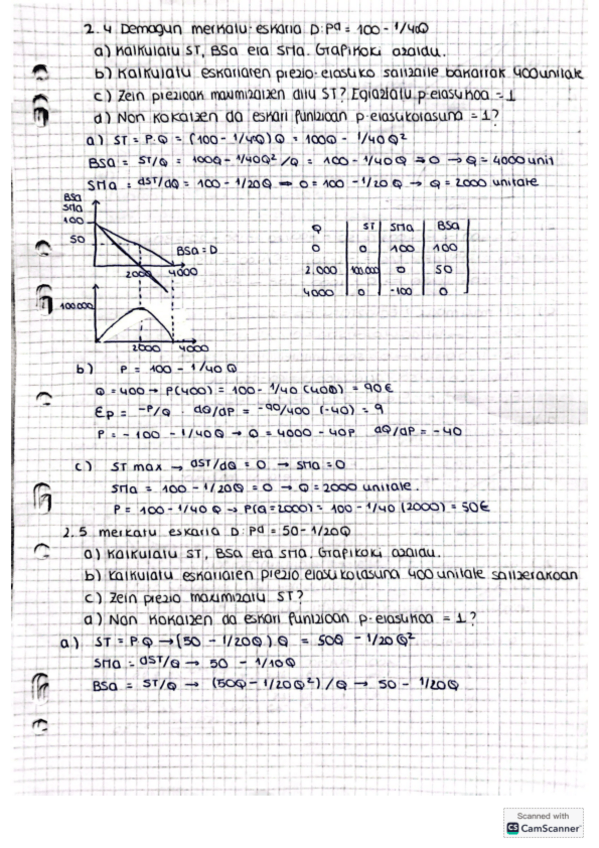 2.4 Demagun merkatu-eskaria D: Pd = 100 - 1/40Q
a) Kalkulatu ST, BSa eta SMa. Grafikoki azaldu.
b) Kalkulatu eskariaren prezio-elastiko saltzaile bakarrak 400 unitate
c) Zein prezioak maximizatzen ditu ST? Egiaztatu p-elastikoa = 1
d) Non kokatzen da eskari funtzioan p-elastikotasuna = 1?
a) ST = P.Q = (100 - 1/40Q) Q = 100Q - 1/40Q²
BSa = ST/Q = 100Q - 1/40Q²/Q = 100 - 1/40Q ⇒ 0 → Q = 4000 unit
SMa = dST/dQ = 100 - 1/20Q → 0 = 100 - 1/20Q → Q = 2000 unitate
BSa
SMa
100
50
BSa = D
2000 4000
100000
2000 4000
Q ST SMa BSa
0 0 100 100
2.000 100.000 0 50
4000 0 -100 0
b) P = 100 - 1/40Q
Q = 400 → P(400) = 100 - 1/40 (400) = 90€
Ep = -P/Q · dQ/dP = -90/400 (-40) = 9
P = -100 - 1/40Q → Q = 4000 - 40P dQ/dP = -40
c) ST max → dST/dQ = 0 → SMa = 0
SMa = 100 - 1/20Q = 0 → Q = 2000 unitate.
P = 100 - 1/40 Q → P(Q=2000) = 100 - 1/40 (2000) = 50€
2.5 merkatu eskaria D: Pd = 50 - 1/20Q
a) Kalkulatu ST, BSa eta SMa. Grafikoki azaldu.
b) Kalkulatu eskariaren prezio elastikotasuna 400 unitate saltzerakoan
c) Zein prezio maximizatu ST?
d) Non kokatzen da eskari funtzioan p-elastikoa = 1?
a) ST = P Q → (50 - 1/20Q).Q = 50Q - 1/20Q²
SMa = dST/Q → 50 - 1/10Q
BSa = ST/Q → (50Q - 1/20Q²)/Q → 50 - 1/20Q
Scanned with
CS CamScanner